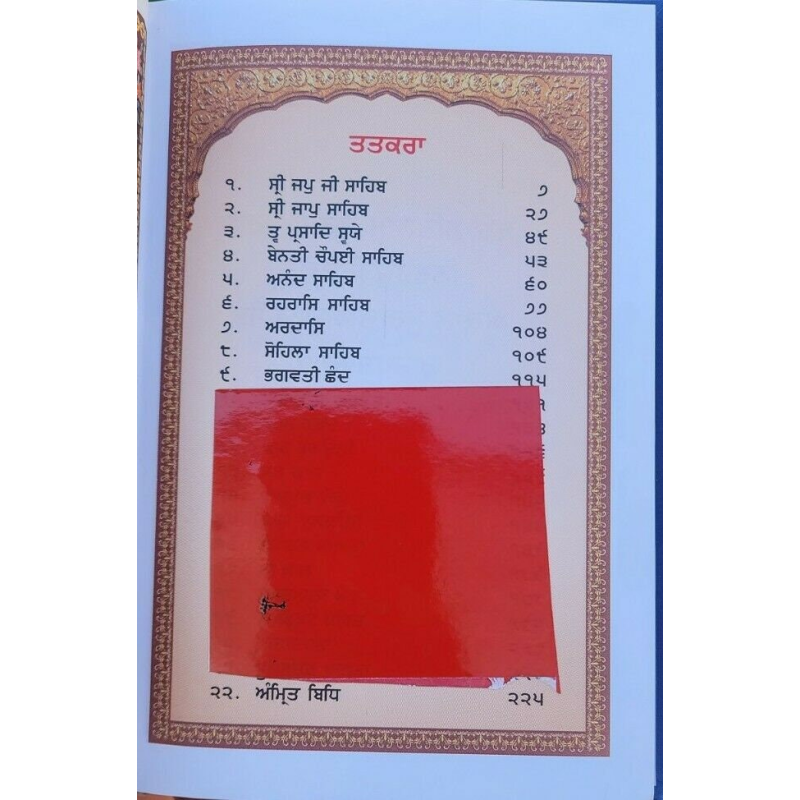 ਤਤਕਰਾ
੧. ਸ੍ਰੀ ਜਪੁ ਜੀ ਸਾਹਿਬ ੭
੨. ਸ੍ਰੀ ਜਾਪੁ ਸਾਹਿਬ ੨੭
੩. ਤ੍ਵ ਪ੍ਰਸਾਦਿ ਸ੍ਵਯੇ ੪੯
੪. ਬੇਨਤੀ ਚੌਪਈ ਸਾਹਿਬ ੫੩
੫. ਅਨੰਦ ਸਾਹਿਬ ੬੦
੬. ਰਹਰਾਸਿ ਸਾਹਿਬ ੭੭
੭. ਅਰਦਾਸਿ ੧੦੪
੮. ਸੋਹਿਲਾ ਸਾਹਿਬ ੧੦੯
੯. ਭਗਵਤੀ ਛੰਦ ੧੧੫
੨੨. ਅੰਮ੍ਰਿਤ ਬਿਧਿ ੨੨੫